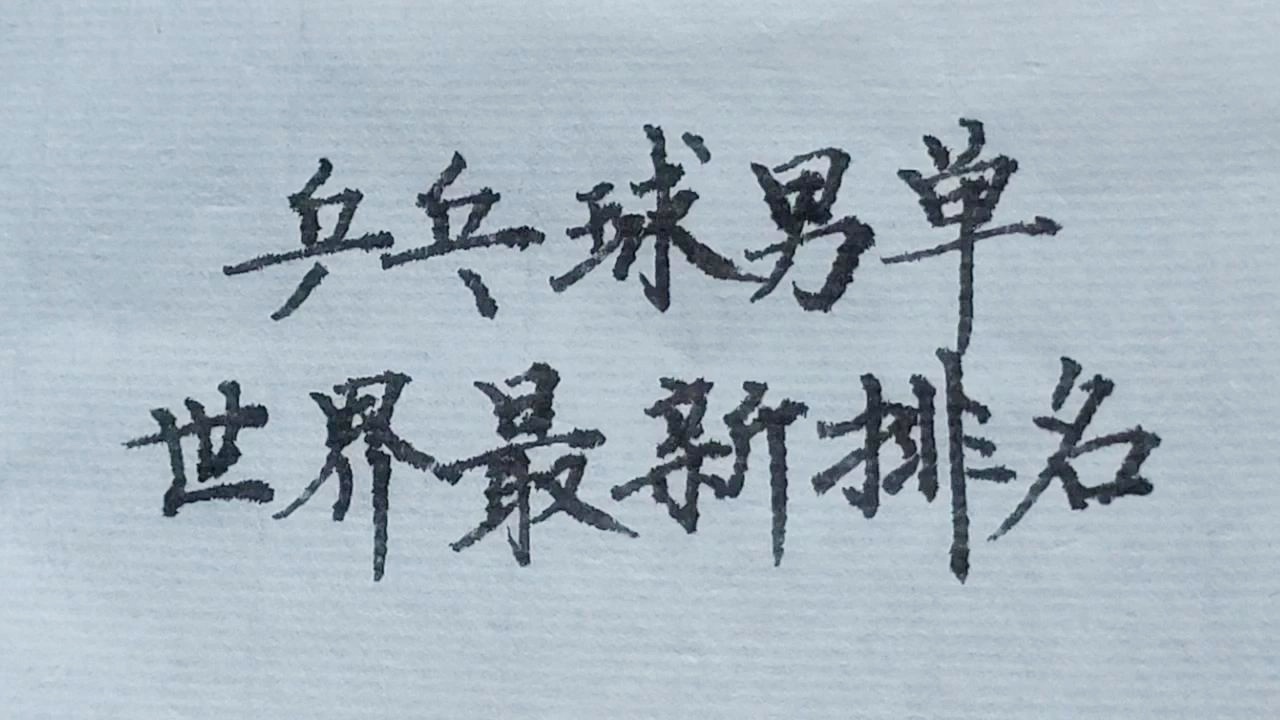 乒乓球男单
世界最新排名